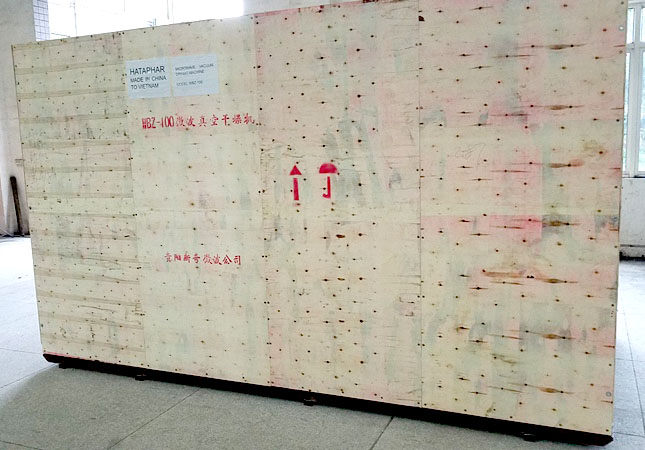 HATAPHAR
MADE IN CHINA
TO VIETNAM
MICROWAVE VACUUM
DRYING MACHINE
WBZ-100微波真空干燥机
贵阳新奇微波公司